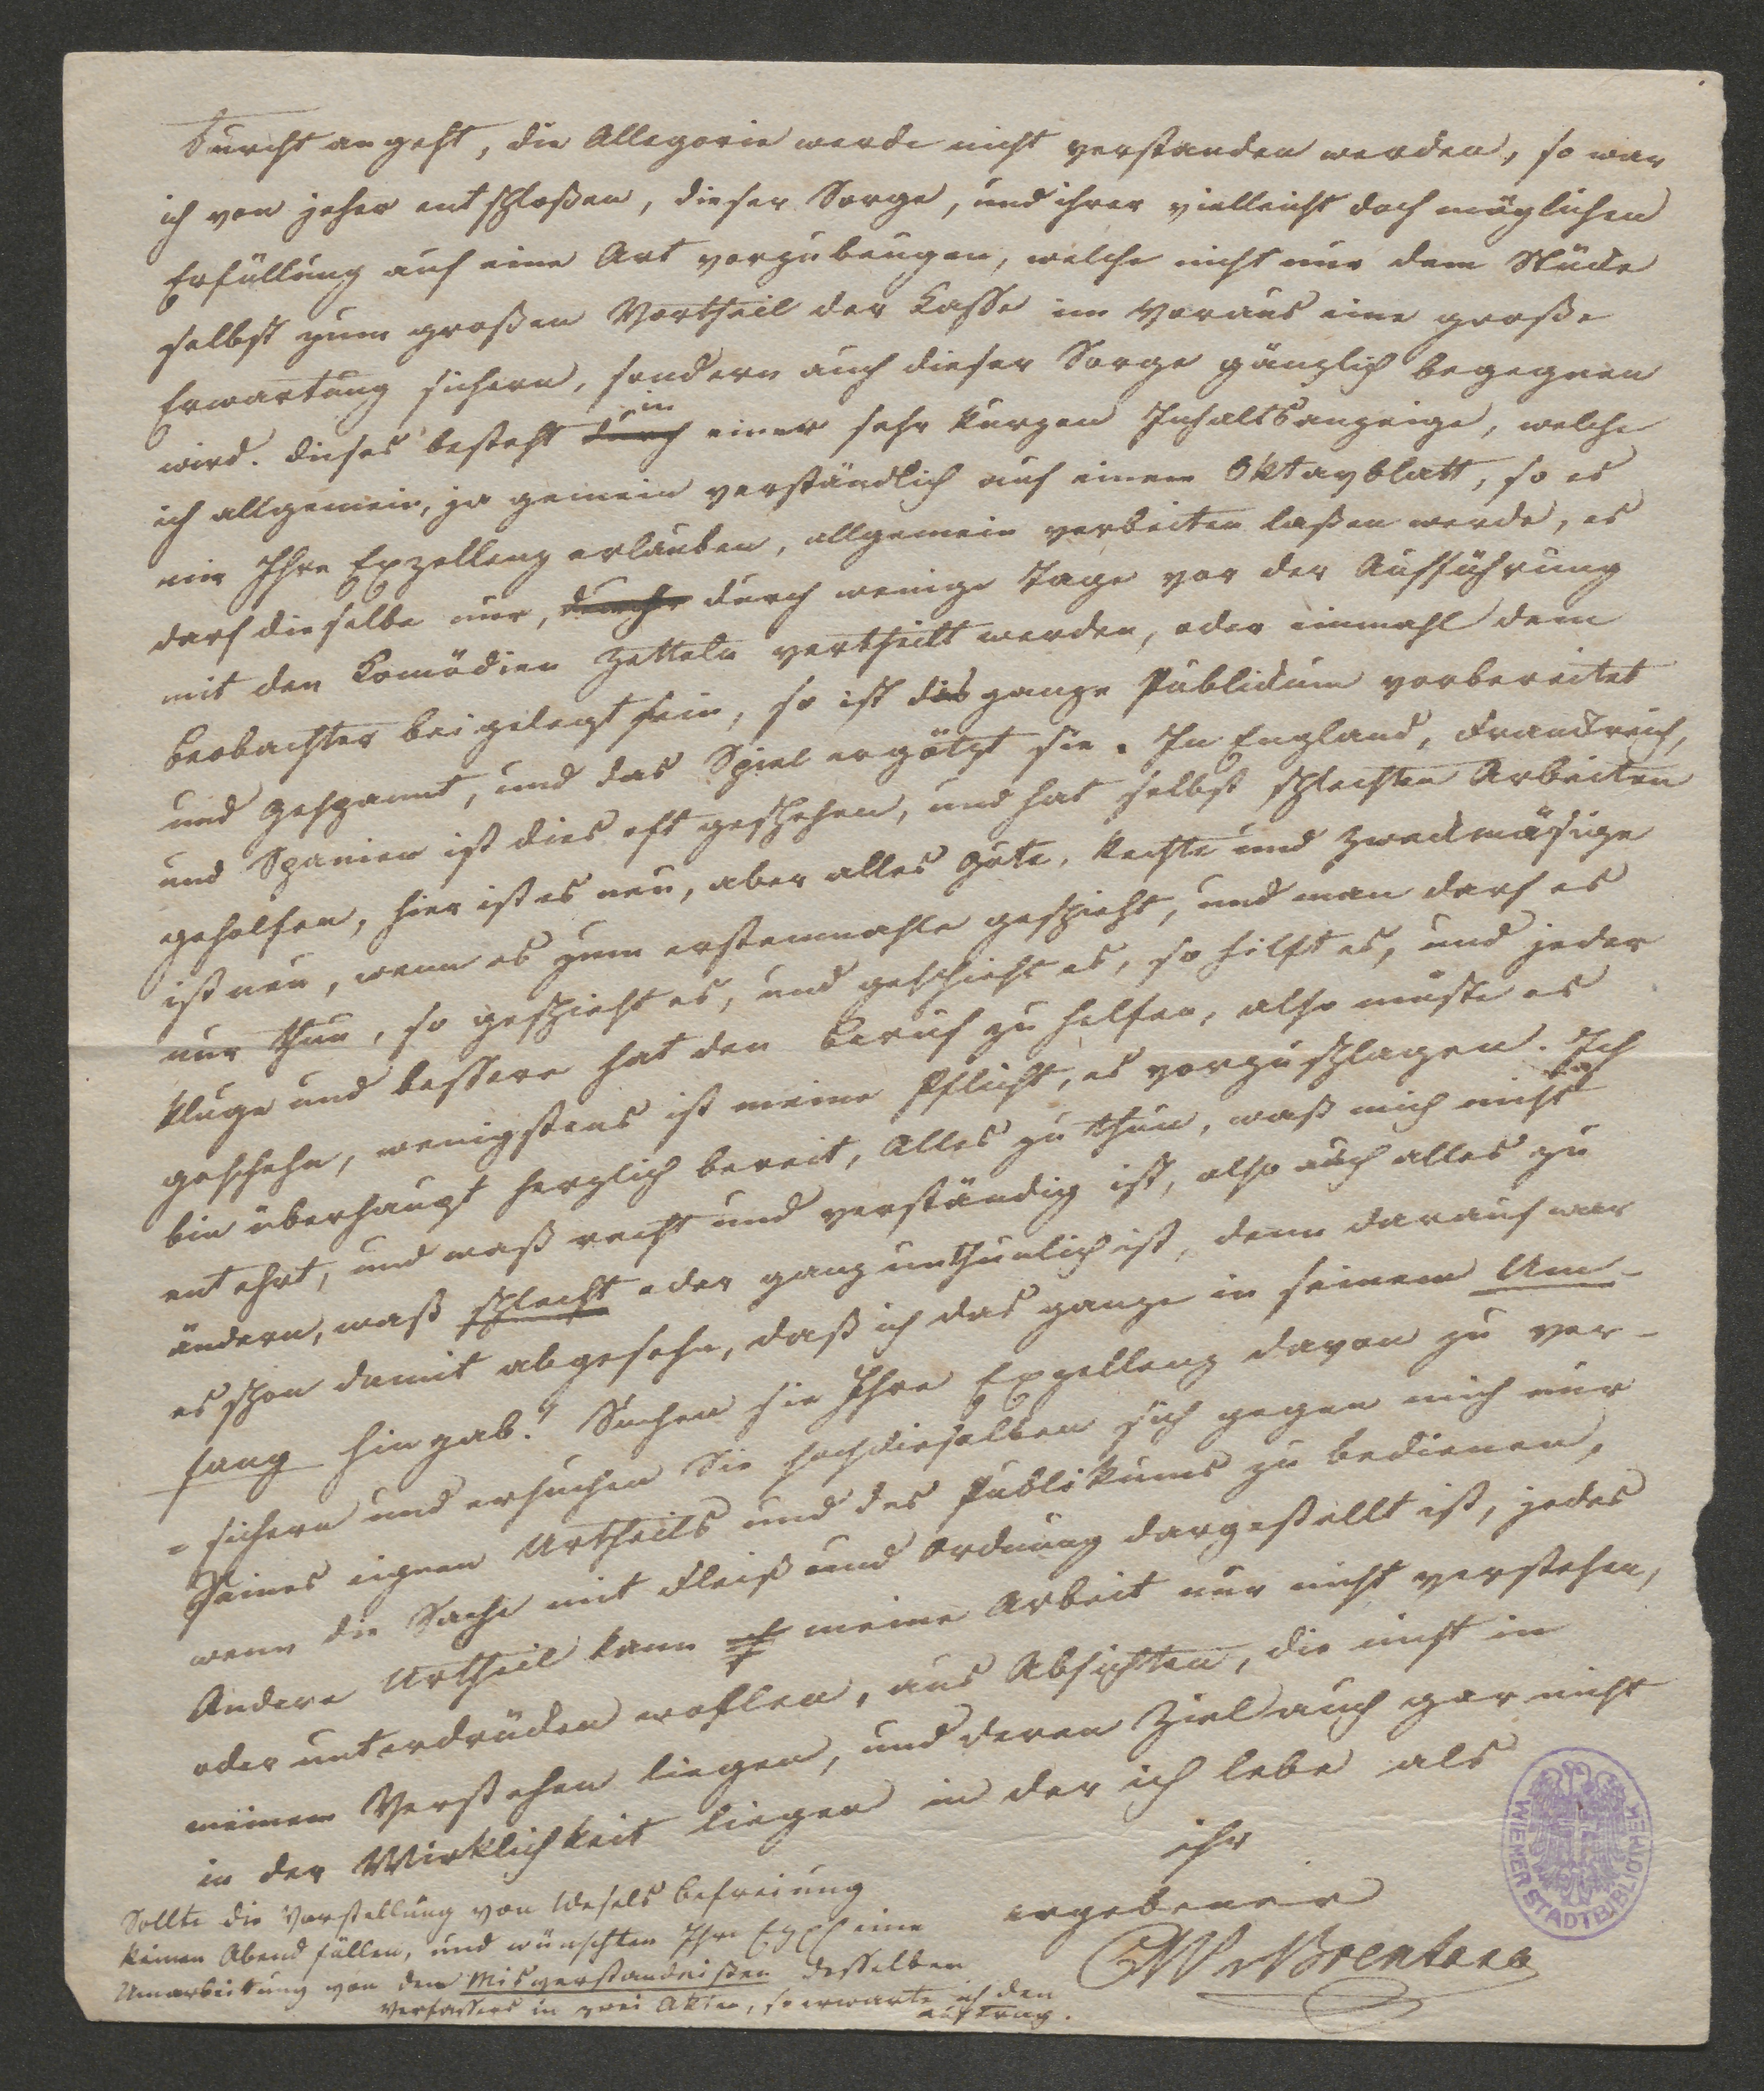 Furcht angeht, die Allegorie werde nicht verstanden werden, so war
ich von jeher entschloßen, dieser Sorge, und ihrer vielleicht doch möglichen
Erfüllung auf eine Art vorzubeugen, welche nicht nur dem Stücke
selbst zum großen Vortheil der Casse im Voraus eine große
Erwartung sichern, sondern auch dieser Sorge gänzlich begegnen
wird. dieses besteht durch in einer sehr kurzen Inhaltsanzeige, welche
ich allgemein, ja gemein verständlich auf einem Oktavblatt, so es
mir Ihre Exzellenz erlauben, allgemein verbeiten laßen werde, es
darf dieselbe nur, durch wenige Tage vor der Aufführung
mit den Comödien Zetteln vertheilt werden, oder einmahl dem
Beobachter beigelegt sein, so ist das ganze Publicum vorbereitet
und gespannt, und das Spiel ergötzt sie. In England, Franckreich,
und Spanien ist dies oft geschehen, und hat selbst schlechten Arbeiten
geholfen, hier ist es neu, aber alles Gute, Rechte und Zweckmäsige
ist neu, wenn es zum erstenmahle geschieht, und man darf es
nur thun, so geschieht es, und geschieht es, so hilft es, und jeder
kluge und bessere hat den Beruf zu helfen, also müste es
geschehn, wenigstens ist meine Pflicht, es vorzuschlagen. Ich
bin überhaupt herzlich bereit, Alles zu thun, waß mich nicht
entehrt, und waß recht und verständig ist, also auch alles zu
ändern, waß schlecht oder ganz unthunlich ist, denn darauf war
es schon damit abgesehn, daß ich das ganze in seinem Um-
fang hingab." Suchen sie Ihre Exzellenz davon zu ver-
=sichern und ersuchen Sie hochdieselben sich gegen mich nur
Seines eignen Urtheils und des Publikums zu bedienen,
wenn die Sache mit Fleiß und Ordnung dargestellt ist, jedes
Andere Urtheil kann meine Arbeit nur nicht verstehen,
oder unterdrücken wollen, aus Absichten, die nicht in
meinem Verstehen liegen, und deren Ziel auch gar nicht
in der Wirklichkeit liegen in der ich lebe als
ihr
ergebener
CW v Brentano
Sollte die Vorstellung von Wesels Befreiung
keinen Abend füllen, und wünschten Ihre Exzell eine
Umarbeitung von dem Misverstandnißen desselben
Verfassers in zwei Akten, so erwarte ich den
auftrag.
WIENER STADTBIBLIOTHEK